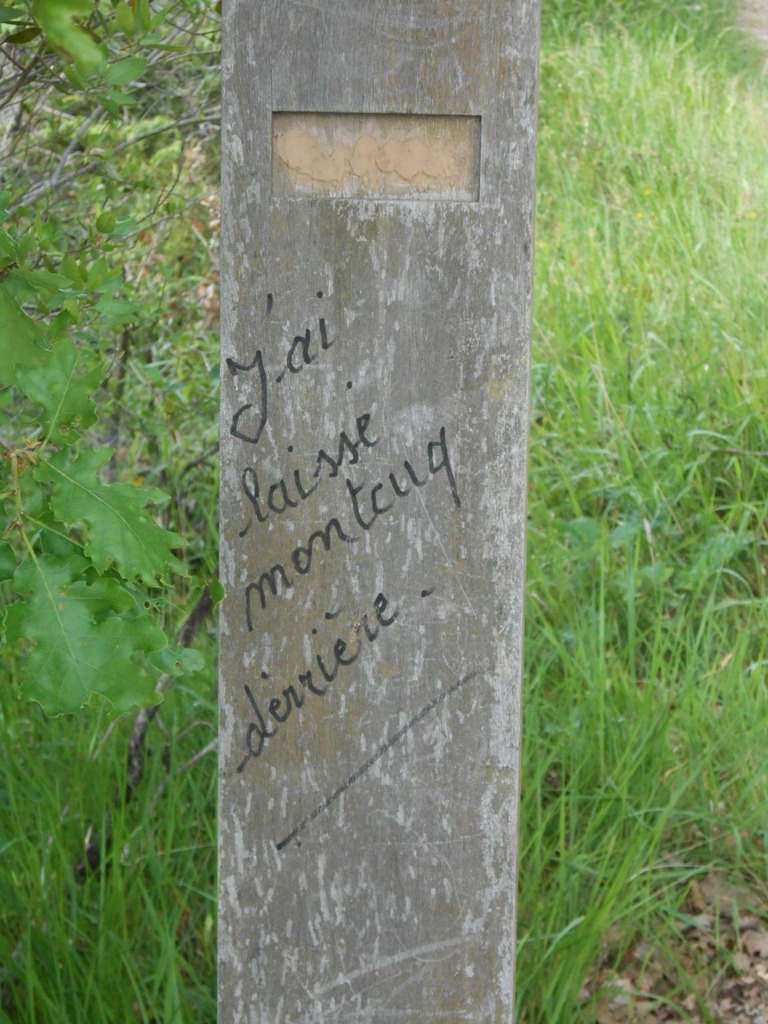 J'ai
laissé
montcuq
derrière.